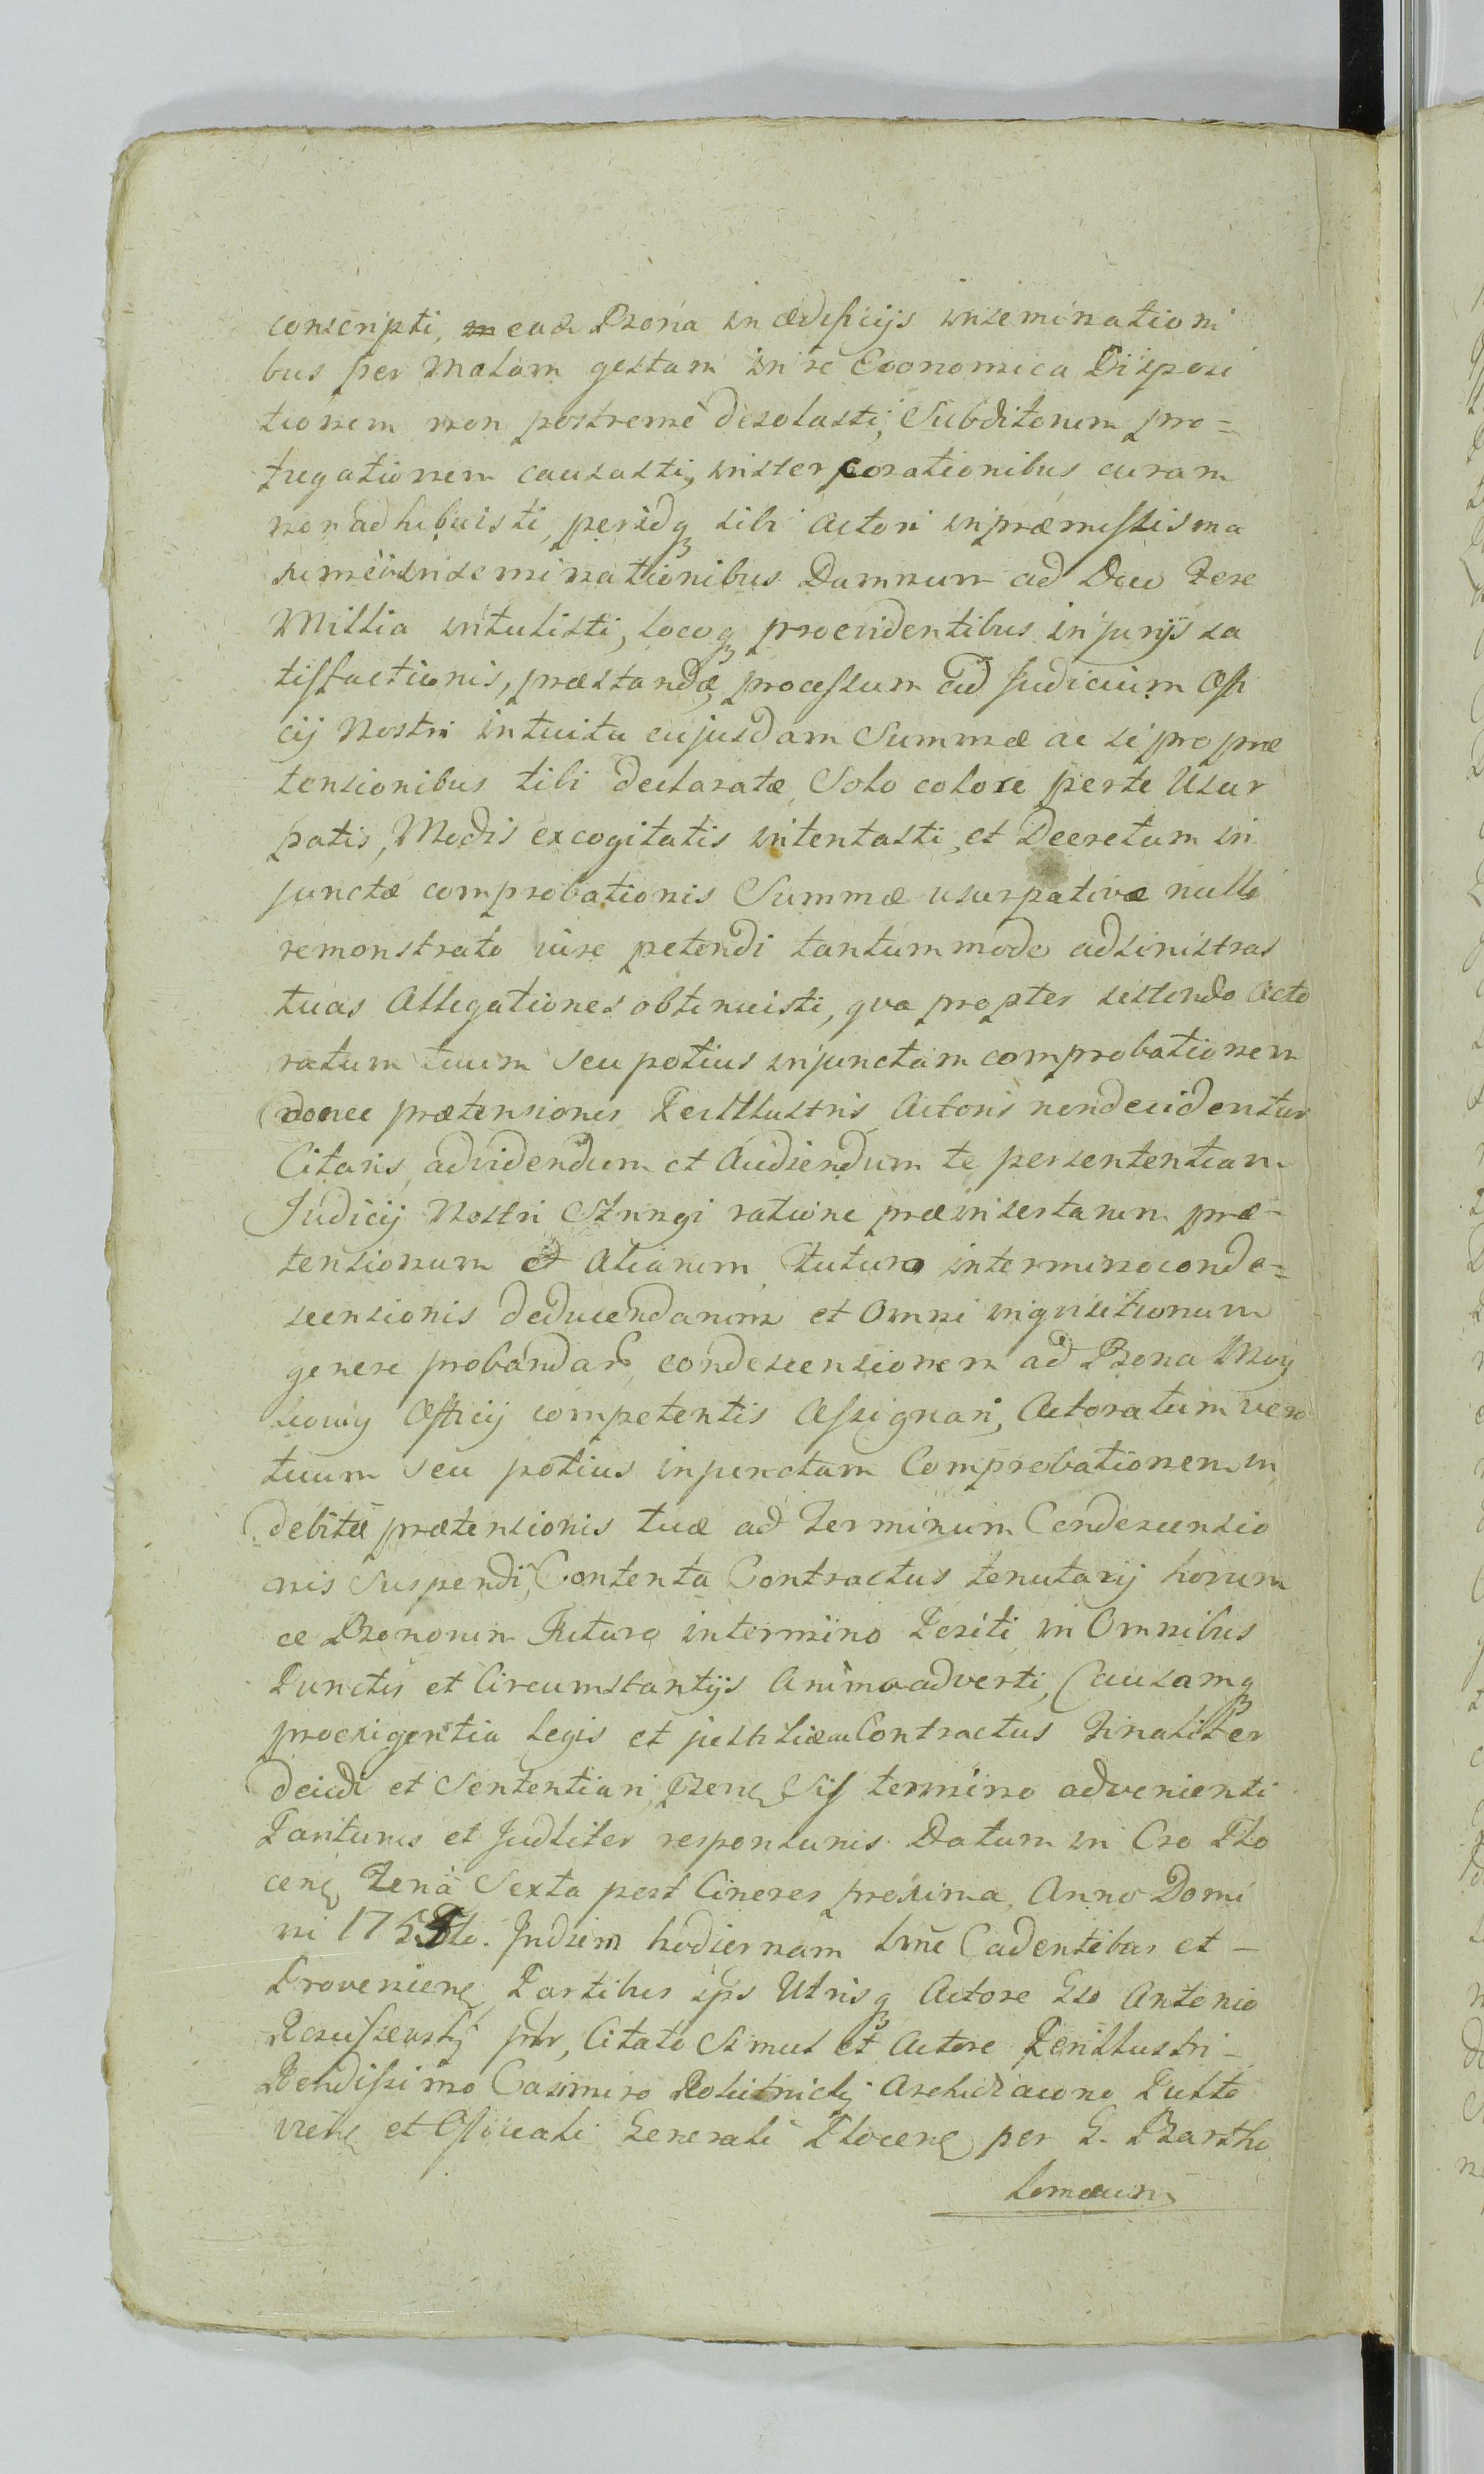 conscripti, eadē Bona in ædificijs inseminationi
bus per malam gestam in re Economica Disposi
tionem non postremè desolasti, Subditorum pro=
fugationem causasti, instercorationibus curam
non adhibuisti, peridq sibi Actori in præmissis ma
ximè in inseminationibus Damnum ad Duo Fere
Millia intulisti, locoq pro evidentibus injurijs sa
tisfactionis, præstandæ, processum ad Judicium Offi
cij Nostri intuitu cujusdam Summæ ac si pro præ
tensionibus tibi declaratæ, Solo colore per te Usur
patis, Modis excogitatis intentasti, et Decretum in
junctæ comprobationis Summæ usurpativæ nullo
remonstrato jure petendi tantummodo ad sinistras
tuas Allegationes obtinuisti, qva propter sistendo Acto
ratum tuum seu potius injunctam comprobationem
donec prætensiones Perillustris Actoris non decidentur
Citaris, ad videndum et Audiendum te per sententiam
Judicij Nostri Stringi ratione præinsertarum præ-
tensionum et Aliarum futuro in termino conde=
scensionis deducendarum et Omni inqvisitionum
genere probandar, condescensionem ad Bona
Officij competentis Assignari, Actoratum vero
tuum seu potius injunctam Comprobationem in
debitæ prætensionis tuæ ad terminum Condescensio
nis Suspendi, Contenta Contractus tenutarij horum
ce Bonorum Futuro in termino Positi in Omnibus
Punctis et Circumstantijs Animadverti, Causamq
pro exigentia legis et justitiæ Contractus Finaliter
decidi et Sententiari, termino advenienti
Pariturus et Judliter responsurus. Datum in Cro Plo
cen Feria Sexta post Cineres proxima, Anno Domi
ni 1754to. In diem hodiernam Lmē Cadentibus et -
Provenien Partibus ips Utrisq Actore Gso Antonio
Citato Simul et Actore Perillustri-
Rendissimo Casimiro Rokitnicki Archidiacono Pulto
vien et Officiali Generali Plocen per G. Bartho
lomæum